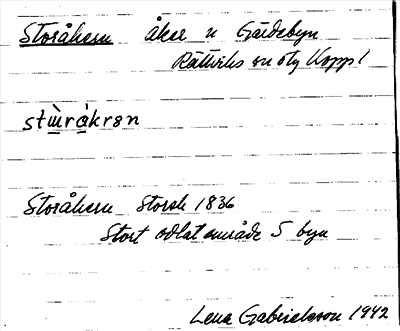 Storåkern åker n Gärdebyn
Rättviks sn Kopp l
stɯ̀rákrən
Storåkern Storsk 1836
Stort odlat område S byn
Lena Gabrielsson 1942